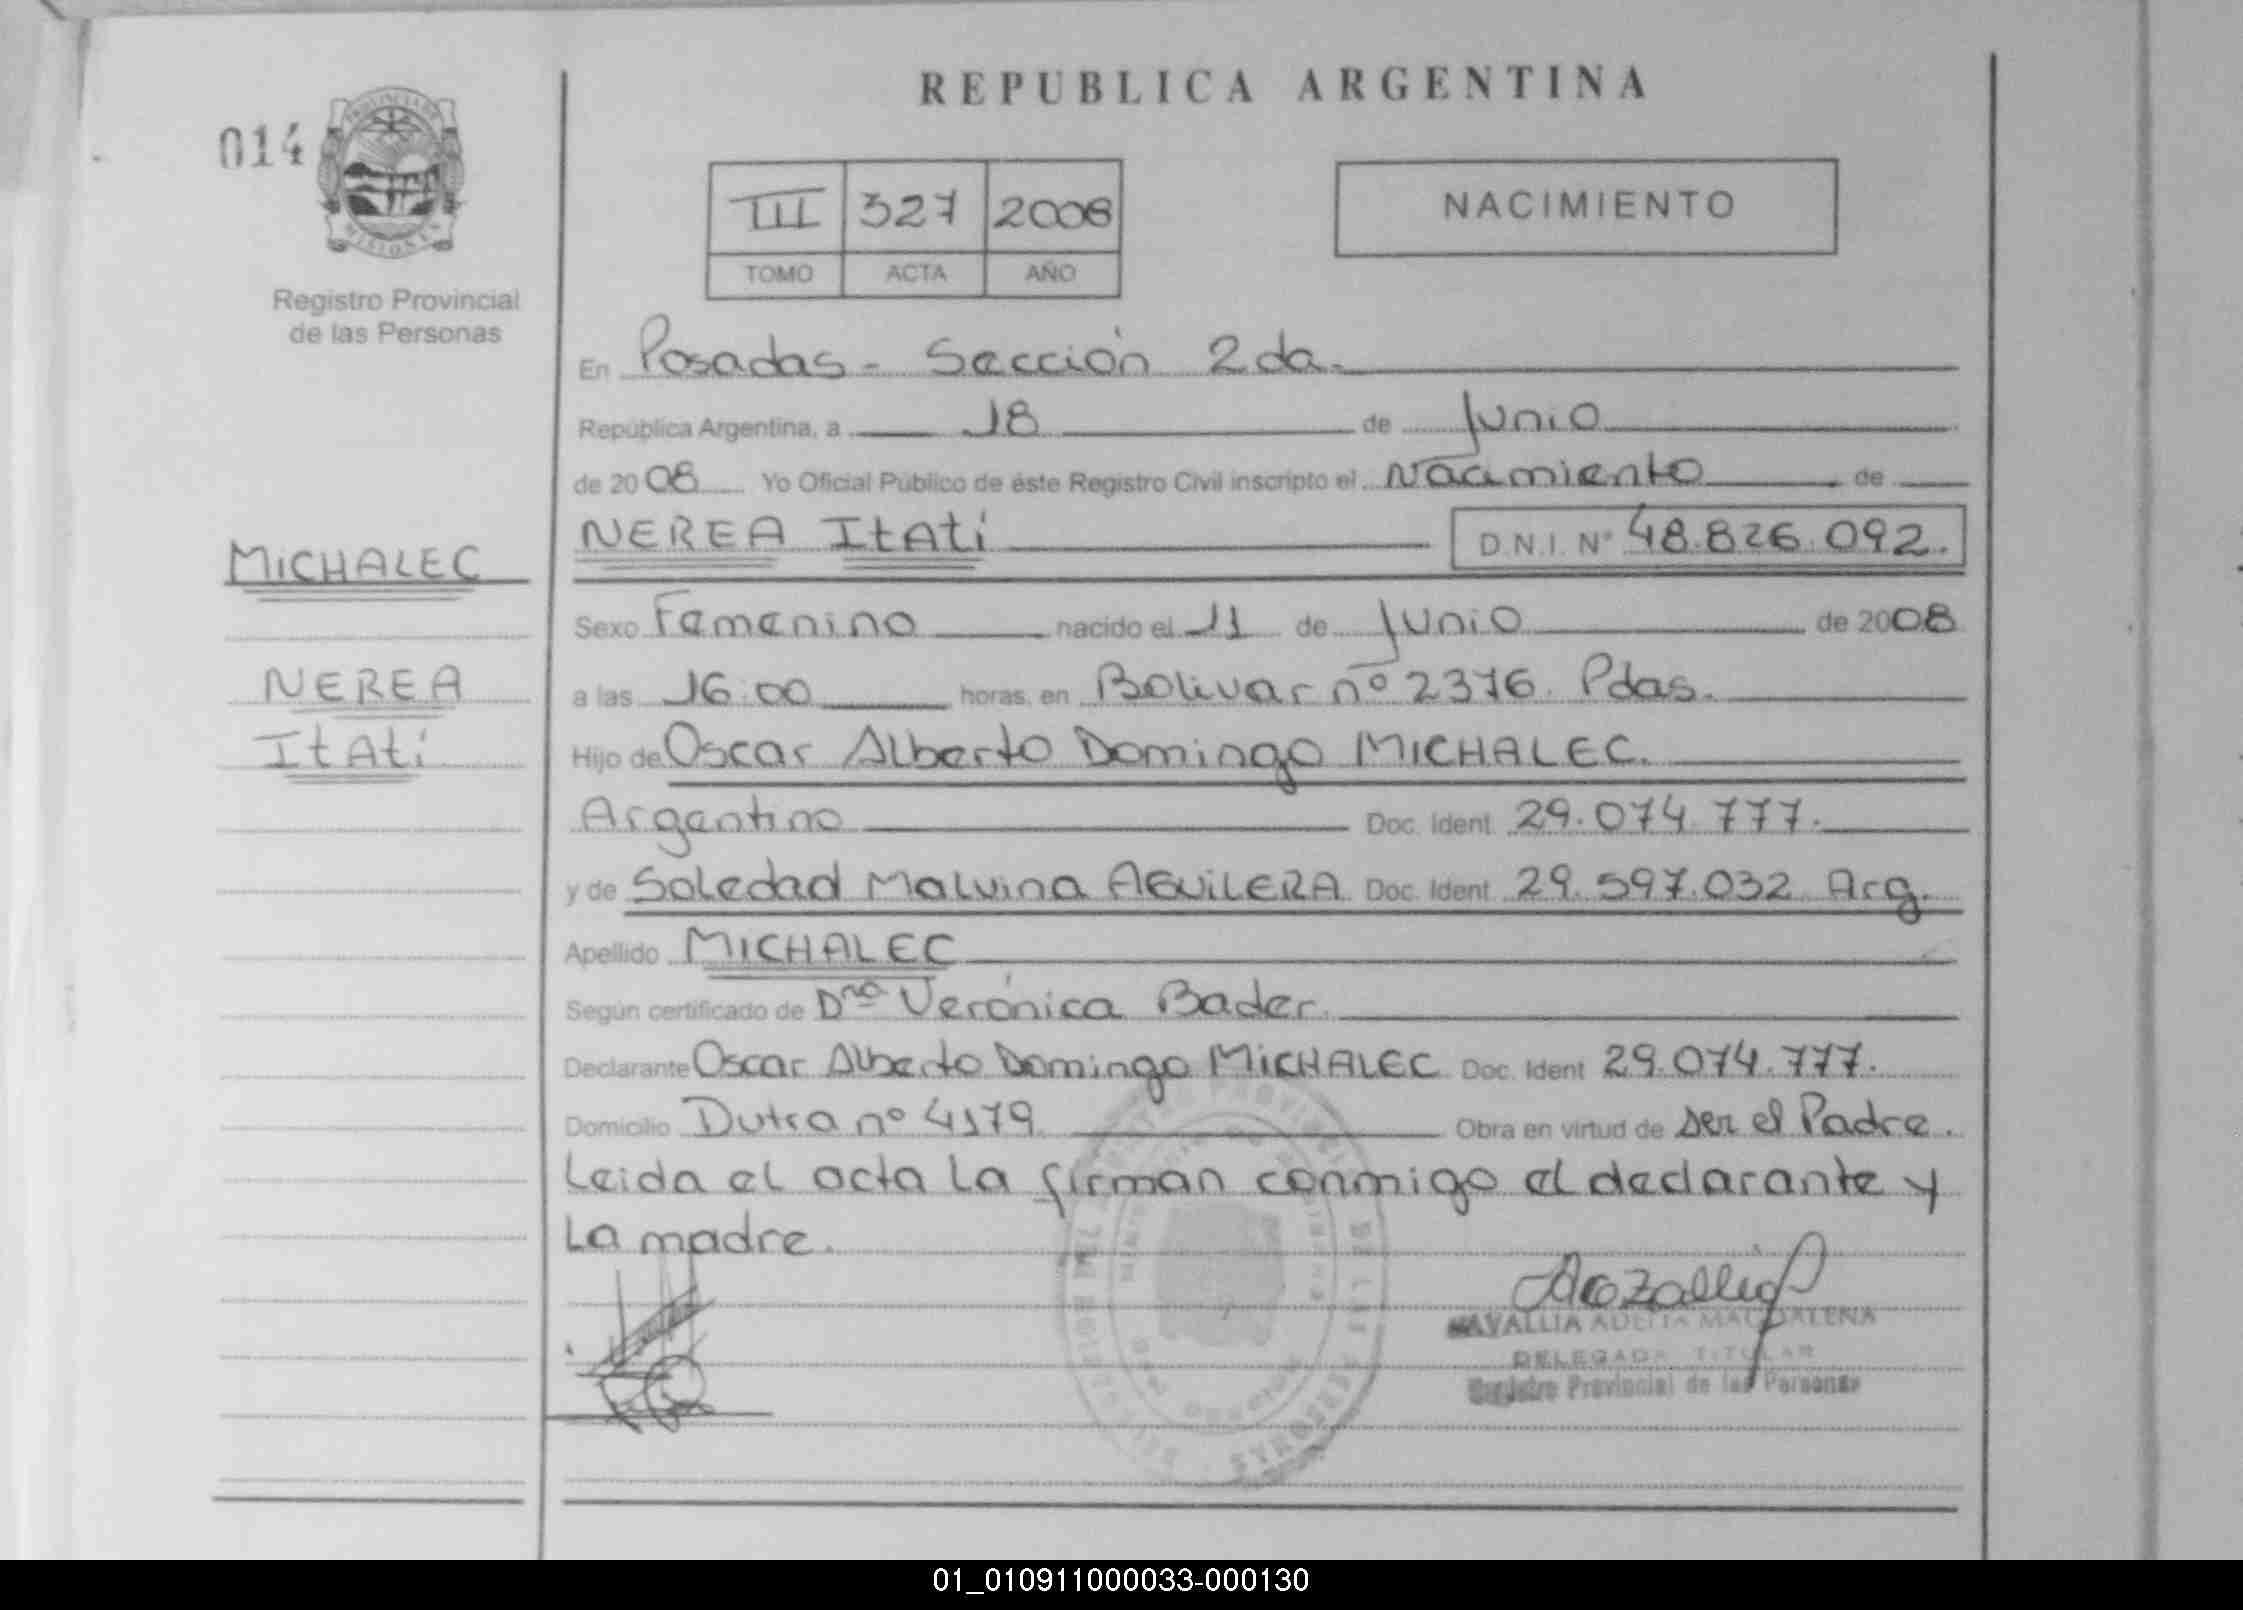 REPUBLICA ARGENTINA
014
PROVINCIA DE
MISIONES
Registro Provincial
de las Personas
III 327 2008
TOMO ACTA AÑO
NACIMIENTO
En Posadas - Sección 2da.
República Argentina, a 18 de Junio
de 2008 Yo Oficial Público de éste Registro Civil inscripto el Nacimiento de
NEREA ItAtí D.N.I. Nº 48.826.092.
MICHALEC
NEREA
ItAtí
Sexo Femenino nacido el 11 de Junio de 2008
a las 16:00 horas, en Bolivar nº 2376. Pdas.
Hijo de Oscar Alberto Domingo MICHALEC.
Argentino Doc. Ident 29.074.777.
y de Soledad Malvina AGUILERA Doc. Ident 29.597.032 Arg.
Apellido MICHALEC
Según certificado de Dra Verónica Bader.
Declarante Oscar Alberto Domingo MICHALEC Doc. Ident 29.074.777.
Domicilio Dutra nº 4179 Obra en virtud de ser el Padre.
Leida el acta la firman conmigo el declarante y
La madre.
ADELIA MAGDALENA
DELEGADA TITULAR
Registro Provincial de las Personas
01_010911000033-000130